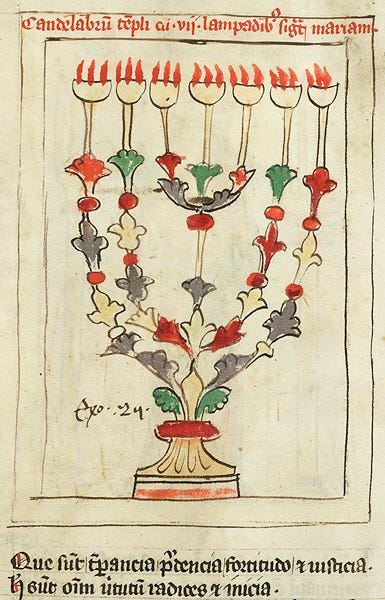 Candelabrū tēpli cū · vij · lampadibꝰ sigͭ mariam ·
Exo · 24 ·
Que sūt tꝑancia p̄dencia fortitudo ⁊ iusticia ·
h̄ sūt oīm v̄tutū radices ⁊ inicia ·